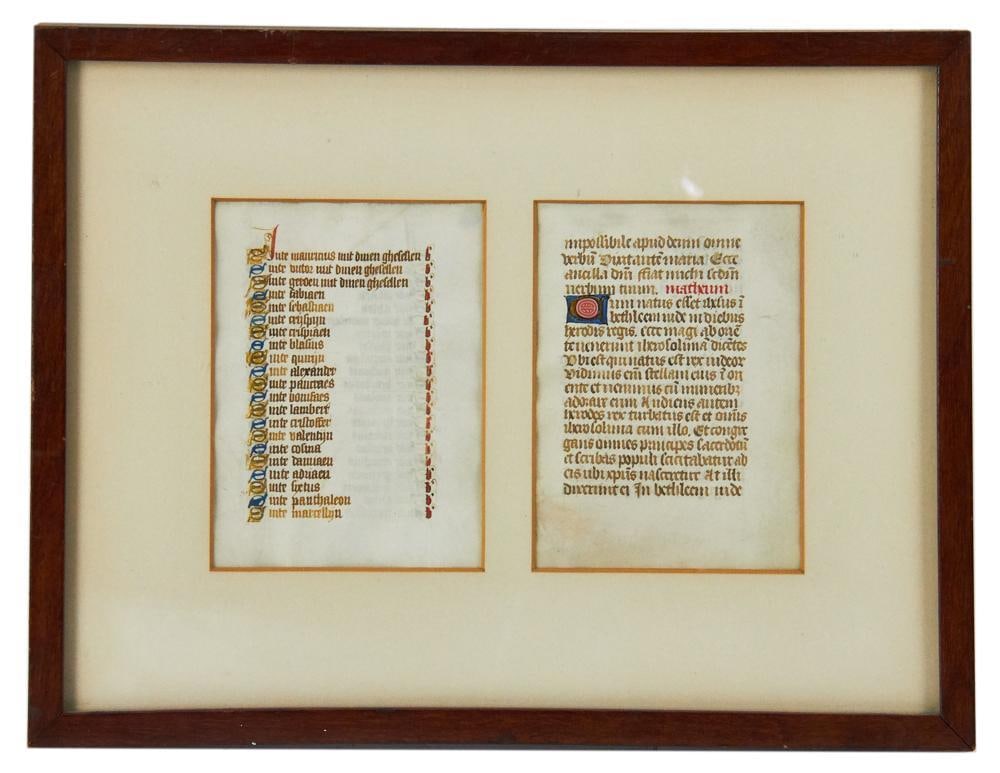 Sinte mauricius mit dinen ghesellen b
Sinte victor mit dinen ghesellen b
Sinte gereon mit dinen ghesellen b
Sinte fabiaen b
Sinte sebastiaen b
Sinte crispijn b
Sinte crispiaen b
Sinte blasius b
Sinte quirijn b
Sinte alexander b
Sinte pancraes b
Sinte bonifaes b
Sinte lambert b
Sinte cristoffer b
Sinte valentijn b
Sinte cosma b
Sinte damiaen b
Sinte adriaen b
Sinte sixtus b
Sinte panthaleon b
Sinte marcellijn b
impossibile apud deum omne
verbū Dixit autē maria Ecce
ancilla dm̄ fiat michi scdm̄
verbum tuum. matheum
Cum natus esset ihesus ī
bethleem iude in diebus
herodis regis. ecce magi ab oriē
te venerunt iherosolima dicētes
Vbi est qui natus est rex iudeor
Vidimus em̄ stellam eius ī ori
ente et venimus cū muneribz
adorare eum Audiens autem
herodes rex turbatus est et omīs
iherosolima cum illo. Et congre
gans omnes principes sacerdotū
et scribas populi sciscitabatur ab
eis ubi xpūs nasceretur At illi
dixerunt ei In bethleem iude